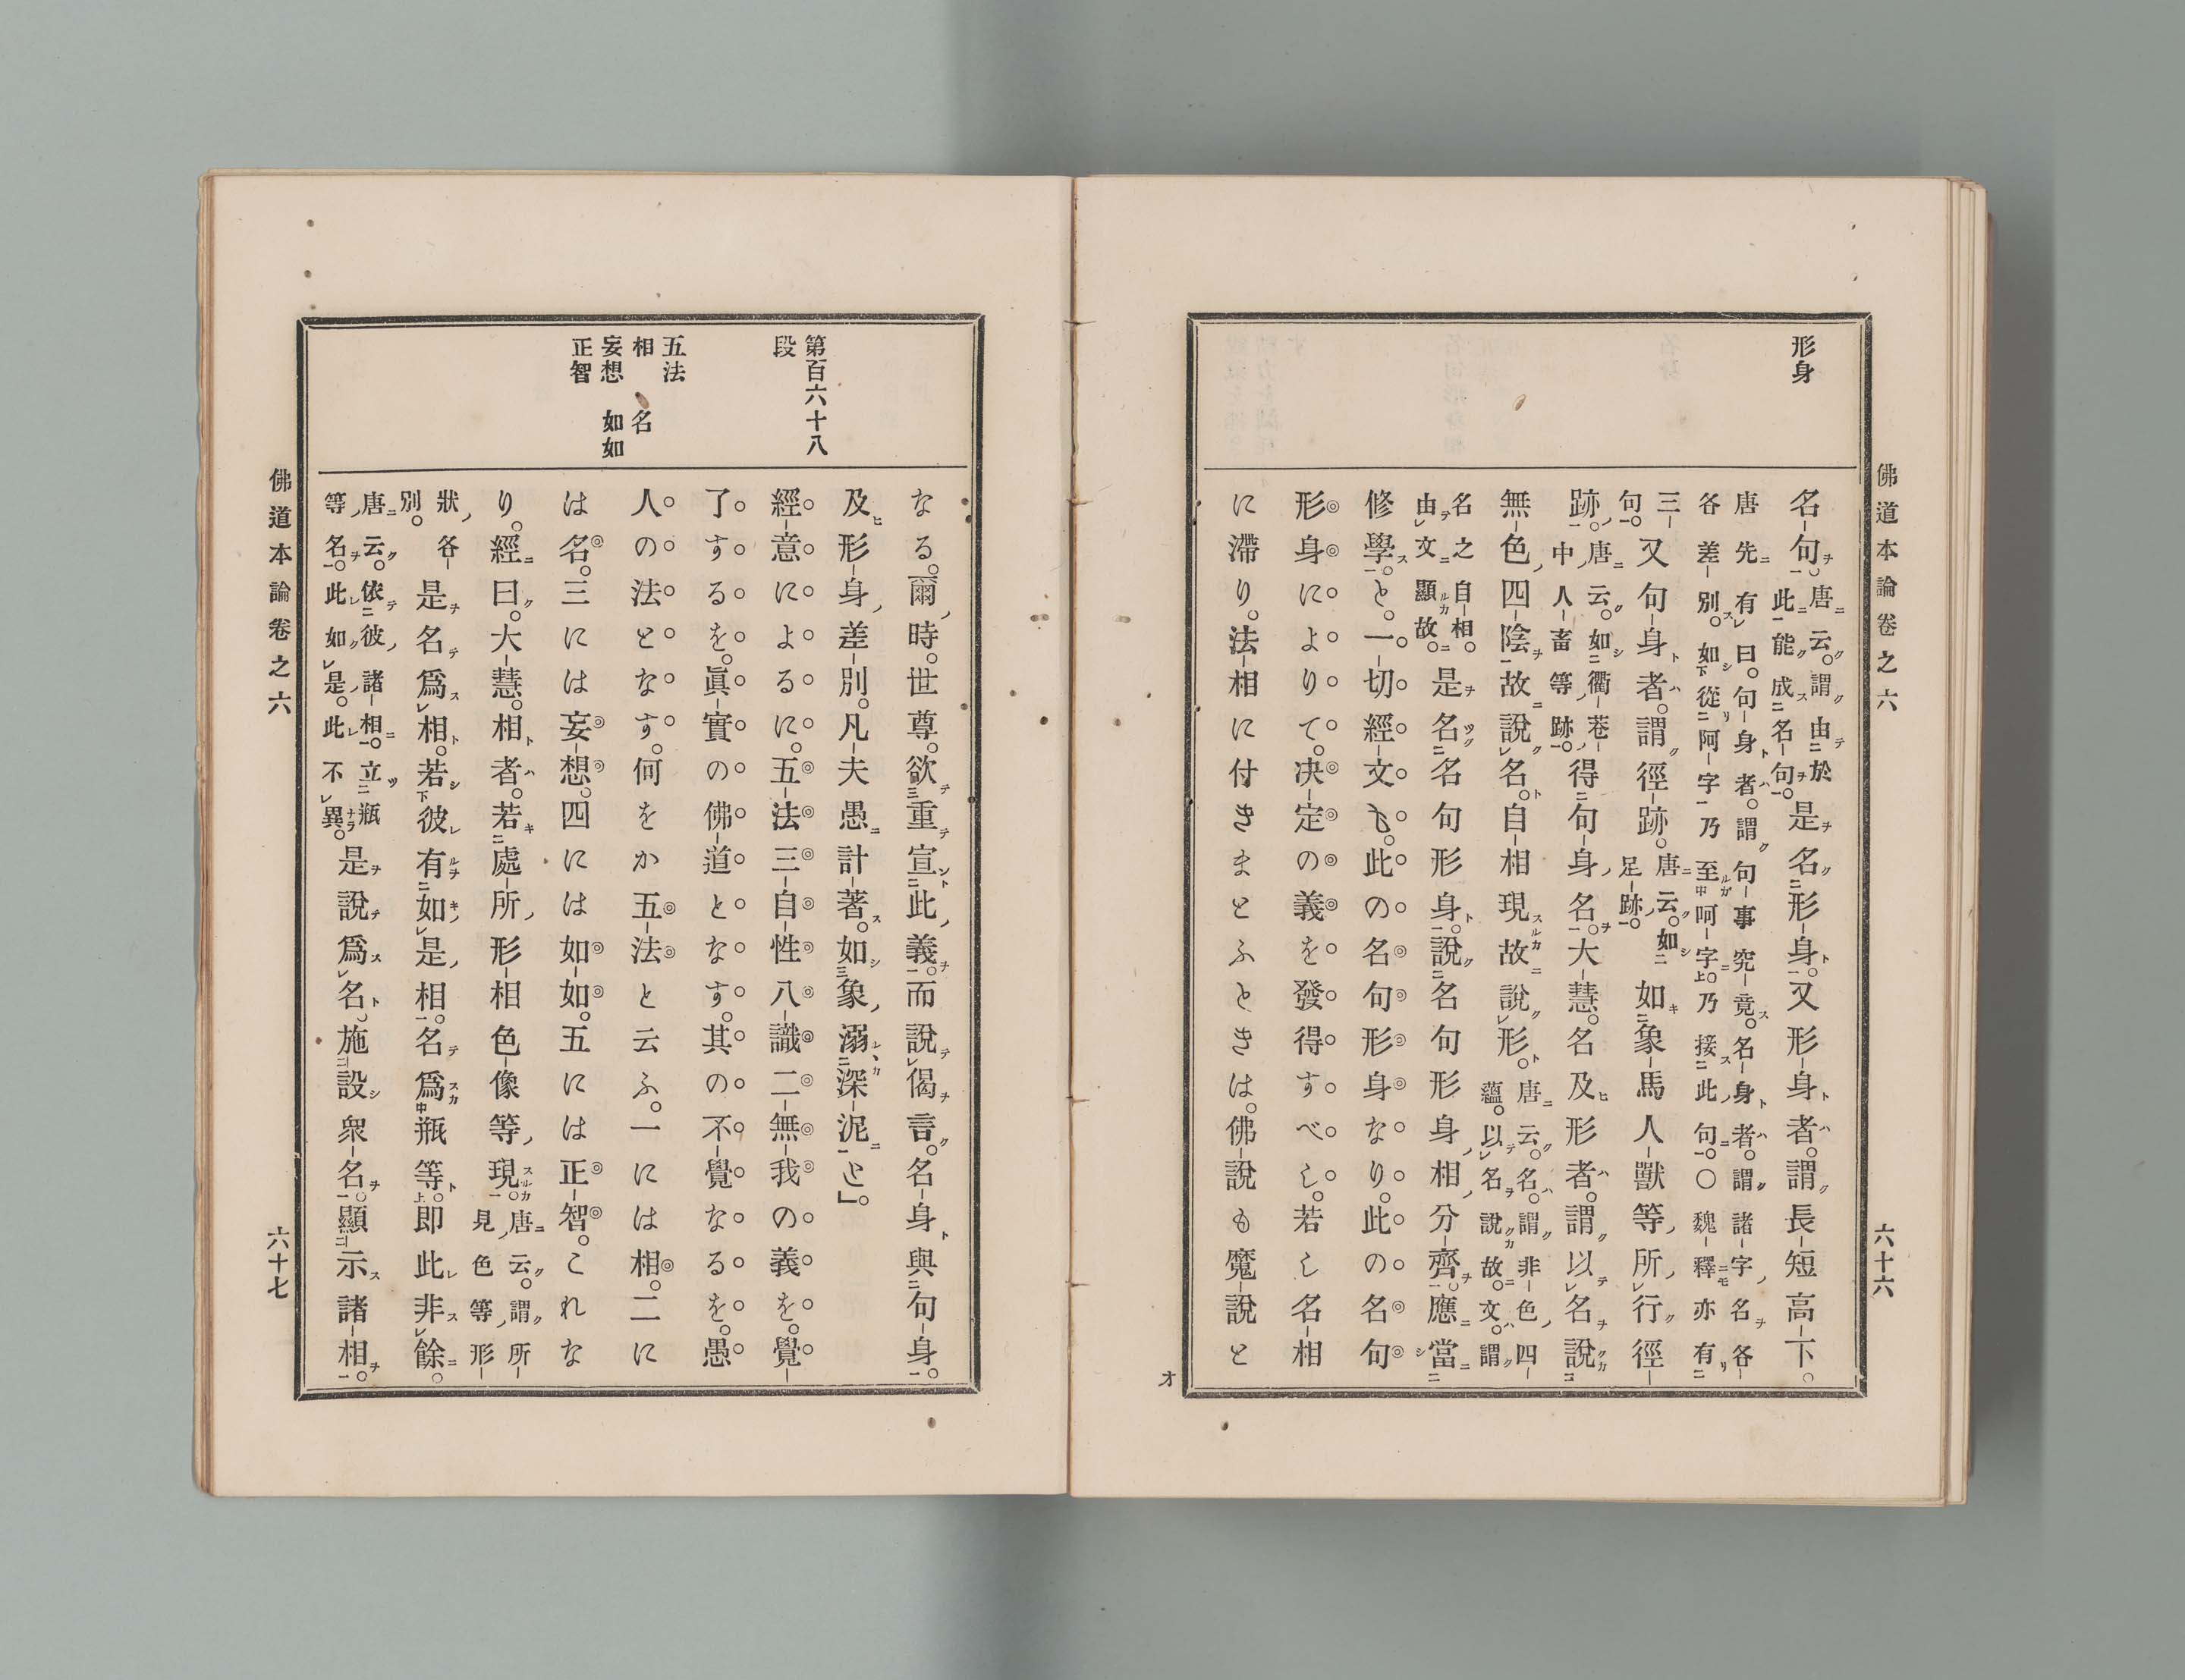 佛道本論卷之六
六十六
形身
名句。唐云。謂由於
此能成名句。是名形身。又形身者。謂長短高下。
唐先有曰。句身者。謂句事究竟。名身者。謂諸字名各
各差別。如從阿字乃至呵字。乃接此句。○魏釋亦有
三
句。又句身者。謂徑跡。唐云。如
足跡。如象馬人獸等所行徑
跡。唐云。如衢巷
中人畜等跡。得句身名。大慧。名及形者。謂以名說
無色四陰故說名。自相現故說形。唐云。名謂非色四
蘊。以名說故。文謂
名之自相。
由文顯故。是名名句形身。說名句形身相分齊。應當
修學。と。一切經文も。此の名句形身なり。此の名句
形身によりて。决定の義を發得すべし。若し名相
に滯り。法相に付きまとふときは。佛說も魔說と
オ
第百六十八
段
五法
相　名
妄想　如如
正智
なる。爾時。世尊。欲重宣此義。而說偈言。名身與句身。
及形身差別。凡夫愚計著。如象溺深泥と」。
經意によるに。五法三自性八識二無我の義を。覺
了するを。眞實の佛道となす。其の不覺なるを。愚
人の法となす。何をか五法と云ふ。一には相。二に
は名。三には妄想。四には如如。五には正智。これな
り。經曰。大慧。相者。若處所形相色像等現。唐云。謂所
見色等形
狀各
別。是名爲相。若彼有如是相。名爲瓶等。即此非餘。
唐云。依彼諸相。立瓶
等名。此如是。此不異。是說爲名。施設衆名。顯示諸相。
佛道本論卷之六
六十七